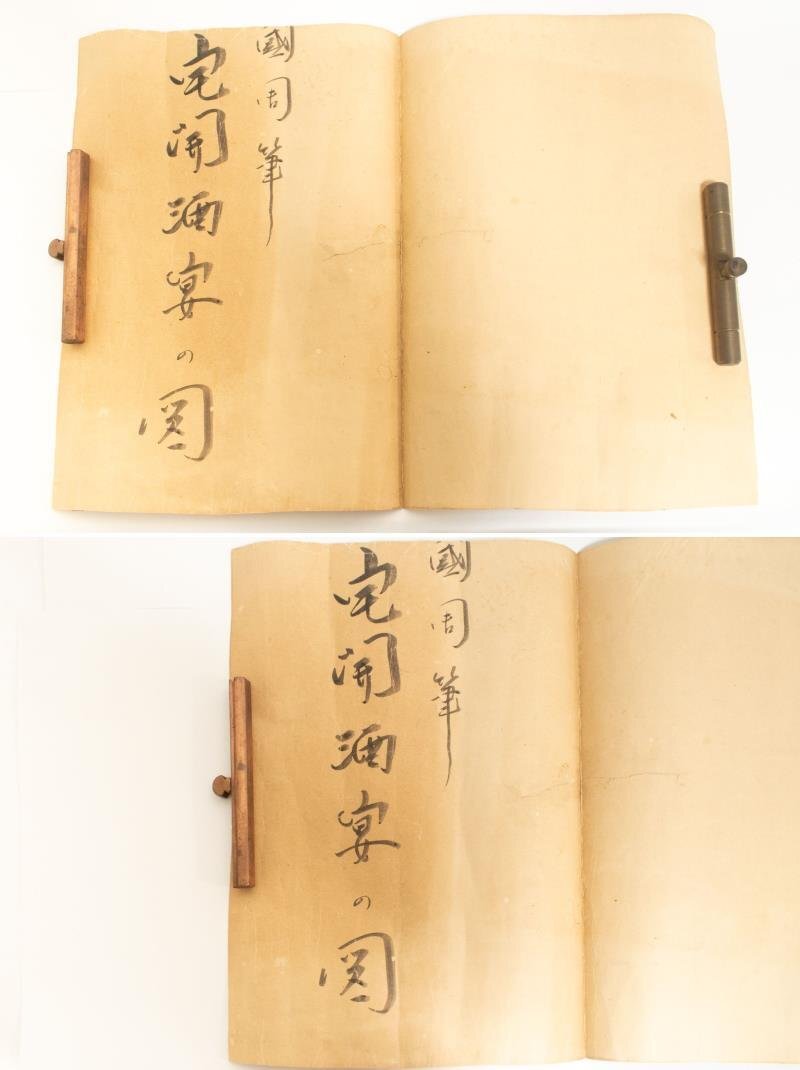 國周筆
宅開酒宴の図
國周筆
宅開酒宴の図